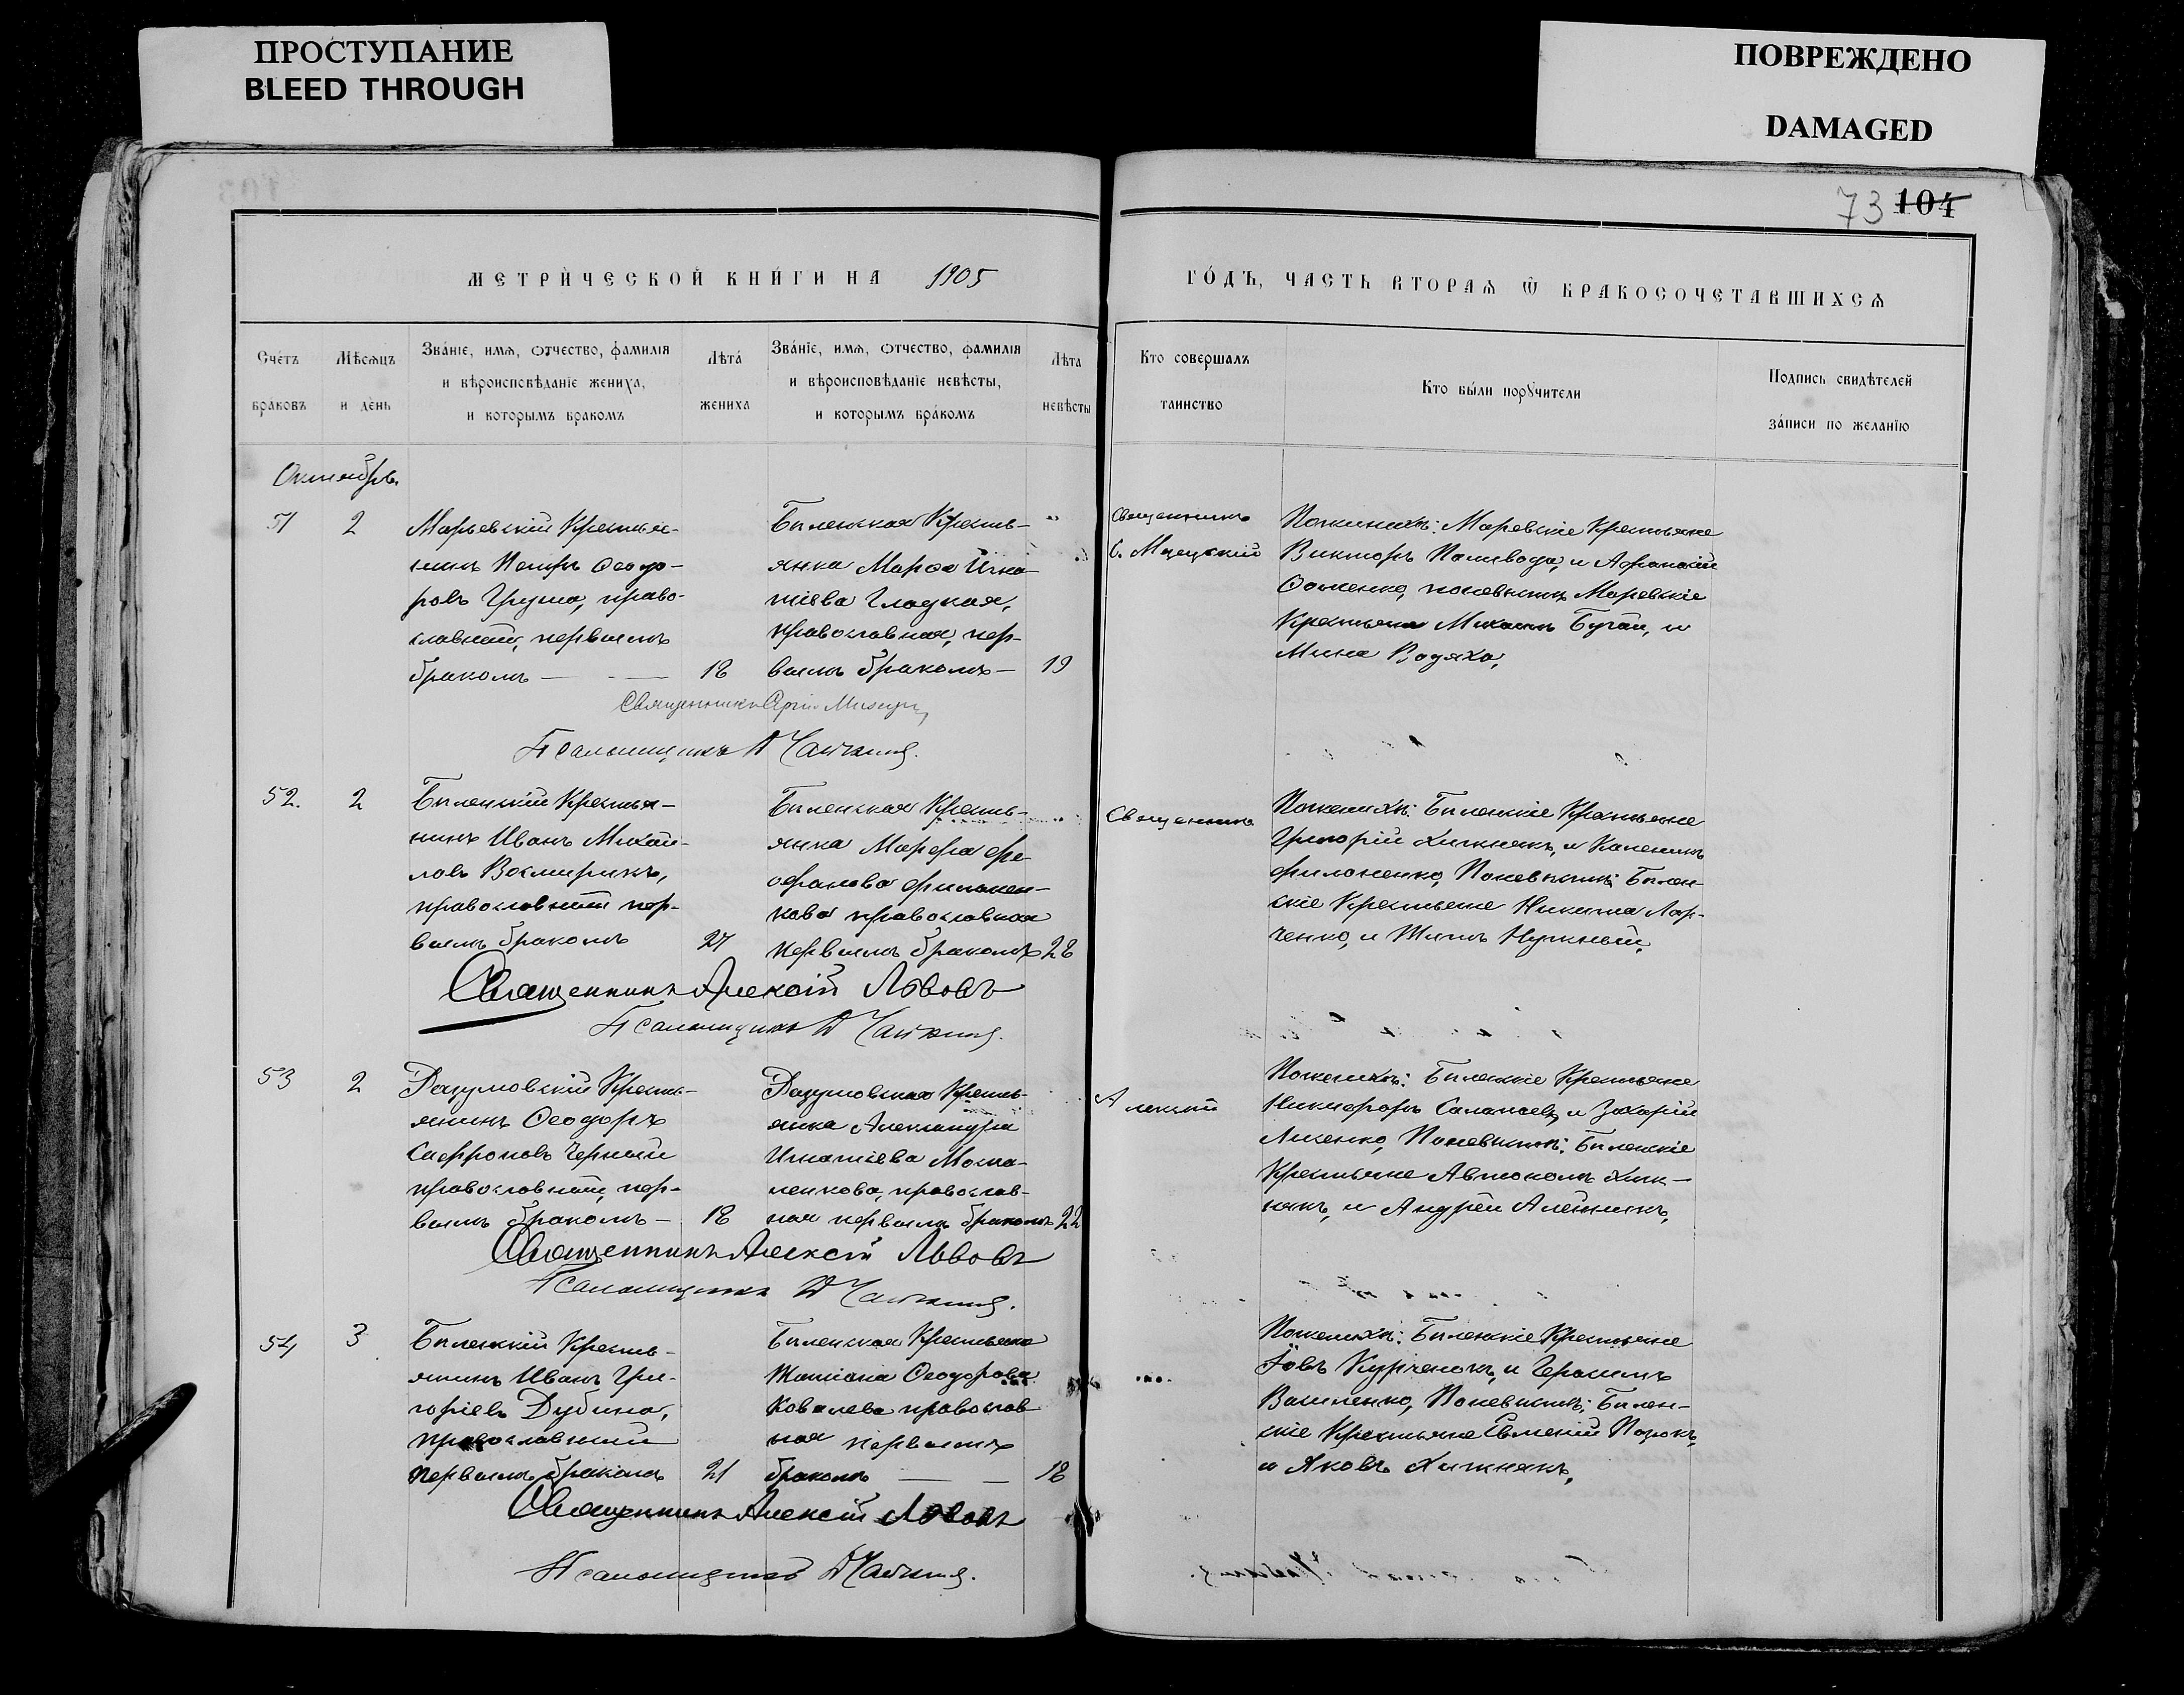 ПРОСТУПАНИЕ
BLEED THROUGH
ПОВРЕЖДЕНО
DAMAGED
73 104
МЕТРИЧЕСКОЙ КНИГИ НА 1905
ГОДЪ, ЧАСТЬ ВТОРАЯ Ѿ БРАКОСОЧЕТАВШИХСЯ
Счетъ браковъ
Мѣсяцъ и день
Званіе, имя, отчество, фамилія
и вѣроисповѣданіе жениха,
и которымъ бракомъ
Лѣта жениха
Званіе, имя, отчество, фамилія
и вѣроисповѣданіе невѣсты,
и которымъ бракомъ
Лѣта невѣсты
Кто совершалъ таинство
Кто были поручители
Подпись свидѣтелей
записи по желанію
Октябрь
51 2
Марьевскій Крестья-
нинъ Петръ Ѳеодо-
ровъ Груша, право-
славный, первымъ
бракомъ — — 18
Бѣленская Кресть-
янка Марѳа Игна-
тіева Гладкая,
православная, пер-
вымъ бракомъ — 19
Священникъ
С. Мацецкій
По женихѣ: Маревскіе Крестьяне
Викторъ Паливода, и Аѳанасій
по невѣстѣ Маревскіе
Крестьяне Михаилъ Бугай, и
Мина Водяхо,
Священникъ
Псаломщикъ
52. 2
Бѣленскій Крестья-
нинъ Иванъ Михай-
ловъ Восмирикъ,
православный пер-
вымъ бракомъ 27
Бѣленская Кресть-
янка Марѳа Ѳе-
офанова Филонен-
кова православная
первымъ бракомъ 28
Священникъ
По женихѣ: Бѣленскіе Крестьяне
Григорій Хижнякъ, и Каленикъ
Филоненко, По невѣстѣ: Бѣлен-
скіе Крестьяне Никита Лар-
ченко, и Нужный,
Священникъ Алексій Львовъ
Псаломщикъ
53 2
Разумовскій Кресть-
янинъ Ѳеодоръ
Сафроновъ Черный
православный, пер-
вымъ бракомъ — 18
Разумовская Кресть-
янка Александра
Игнатіева Моска-
ленкова, православ-
ная первымъ бракомъ 22
Алексій
По женихѣ: Бѣленскіе Крестьяне
Никифоръ и Захарій
Лисенко, По невѣстѣ: Бѣленскіе
Крестьяне Автономъ Хиж-
някъ, и Андрей Алейникъ,
Священникъ Алексій Львовъ
Псаломщикъ
54 3
Бѣленскій Кресть-
янинъ Иванъ Гри-
горіевъ Дубина,
православный
первымъ бракомъ 21
Бѣленская Крестьянка
Татіана Ѳеодорова
Ковалева православ
ная первымъ
бракомъ — — 18
По женихѣ: Бѣленскіе Крестьяне
Іовъ Курченокъ, и Герасимъ
Василенко, По невѣстѣ: Бѣлен-
скіе Крестьяне Евменій
и Яковъ Хижнякъ,
Священникъ Алексій Львовъ
Псаломщикъ